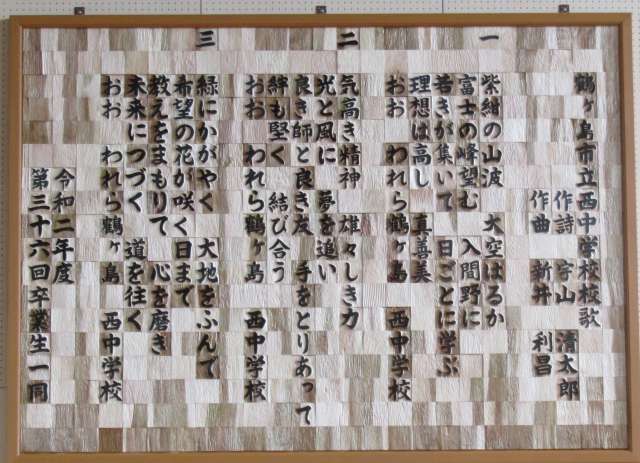 鶴ヶ島市立西中学校校歌
作詩 宇山 清太郎
作曲 新井 利昌
一
紫紺の山波 大空はるか
富士の峰望む 入間野に
若きが集いて 日ごとに学ぶ
理想は高し 真善美
おお われら鶴ヶ島 西中学校
二
気高き精神 雄々しき力
光と風に 夢を追い
良き師と良き友 手をとりあって
絆も堅く 結び合う
おお われら鶴ヶ島 西中学校
三
緑にかがやく 大地をふんで
希望の花が咲く日まで
教えをまもりて 心を磨き
未来につづく 道を往く
おお われら鶴ヶ島 西中学校
令和二年度
第三十六回卒業生一同